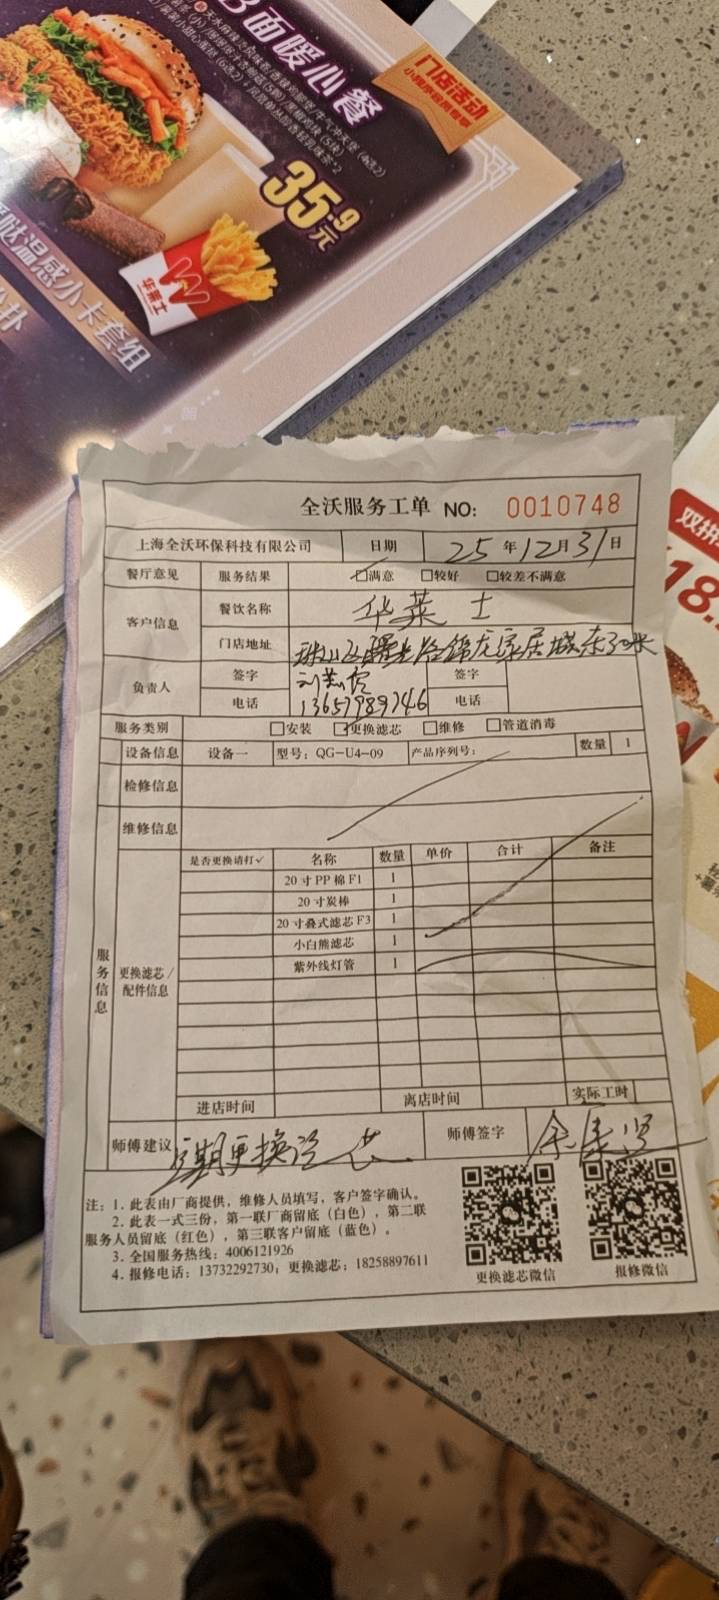 B面暖心餐
门店活动
35.9元
华莱士
温感小卡套组
双拼
18.
全沃服务工单 NO: 0010748
上海全沃环保科技有限公司 日期 25年12月31日
餐厅意见 服务结果 满意 较好 较差不满意
客户信息 餐饮名称 华莱士
门店地址 珠山区曙光路锦龙家居城东30米
负责人 签字 签字
电话 电话
服务类别 安装 更换滤芯 维修 管道消毒
设备信息 设备一 型号：QG-U4-09 产品序列号： 数量 1
检修信息
维修信息
服务信息
更换滤芯/配件信息
是否更换请打√ 名称 数量 单价 合计 备注
20寸PP棉F1 1
20寸炭棒 1
20寸叠式滤芯F3 1
小白熊滤芯 1
紫外线灯管 1
进店时间 离店时间 实际工时
师傅建议 定期更换滤芯 师傅签字
注：1. 此表由厂商提供，维修人员填写，客户签字确认。
2. 此表一式三份，第一联厂商留底（白色），第二联
服务人员留底（红色），第三联客户留底（蓝色）。
3. 全国服务热线：4006121926
4. 报修电话：13732292730；更换滤芯：18258897611
更换滤芯微信 报修微信